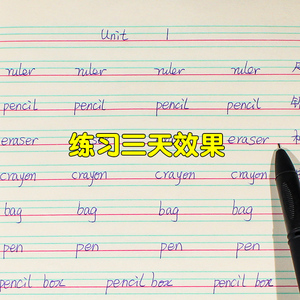 Unit 1
ruler ruler ruler ruler
pencil pencil pencil pencil
eraser eraser
练习三天效果
crayon crayon crayon crayon
bag bag bag bag
pen pen pen pen
pencil box pencil box pencil box